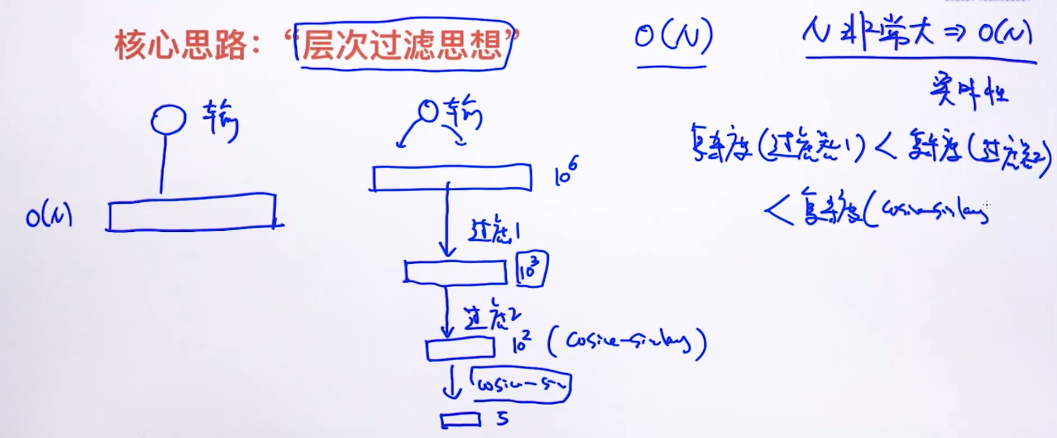 核心思路：“层次过滤思想”
O(N)
N非常大 ⇒ O(N)
实时性
输
输
复杂度(过滤1) < 复杂度(过滤2)
10^6
O(N)
< 复杂度(cosine-similarity
过滤1
10^3
过滤2
10^2 (cosine-similarity)
cosine-sim
5